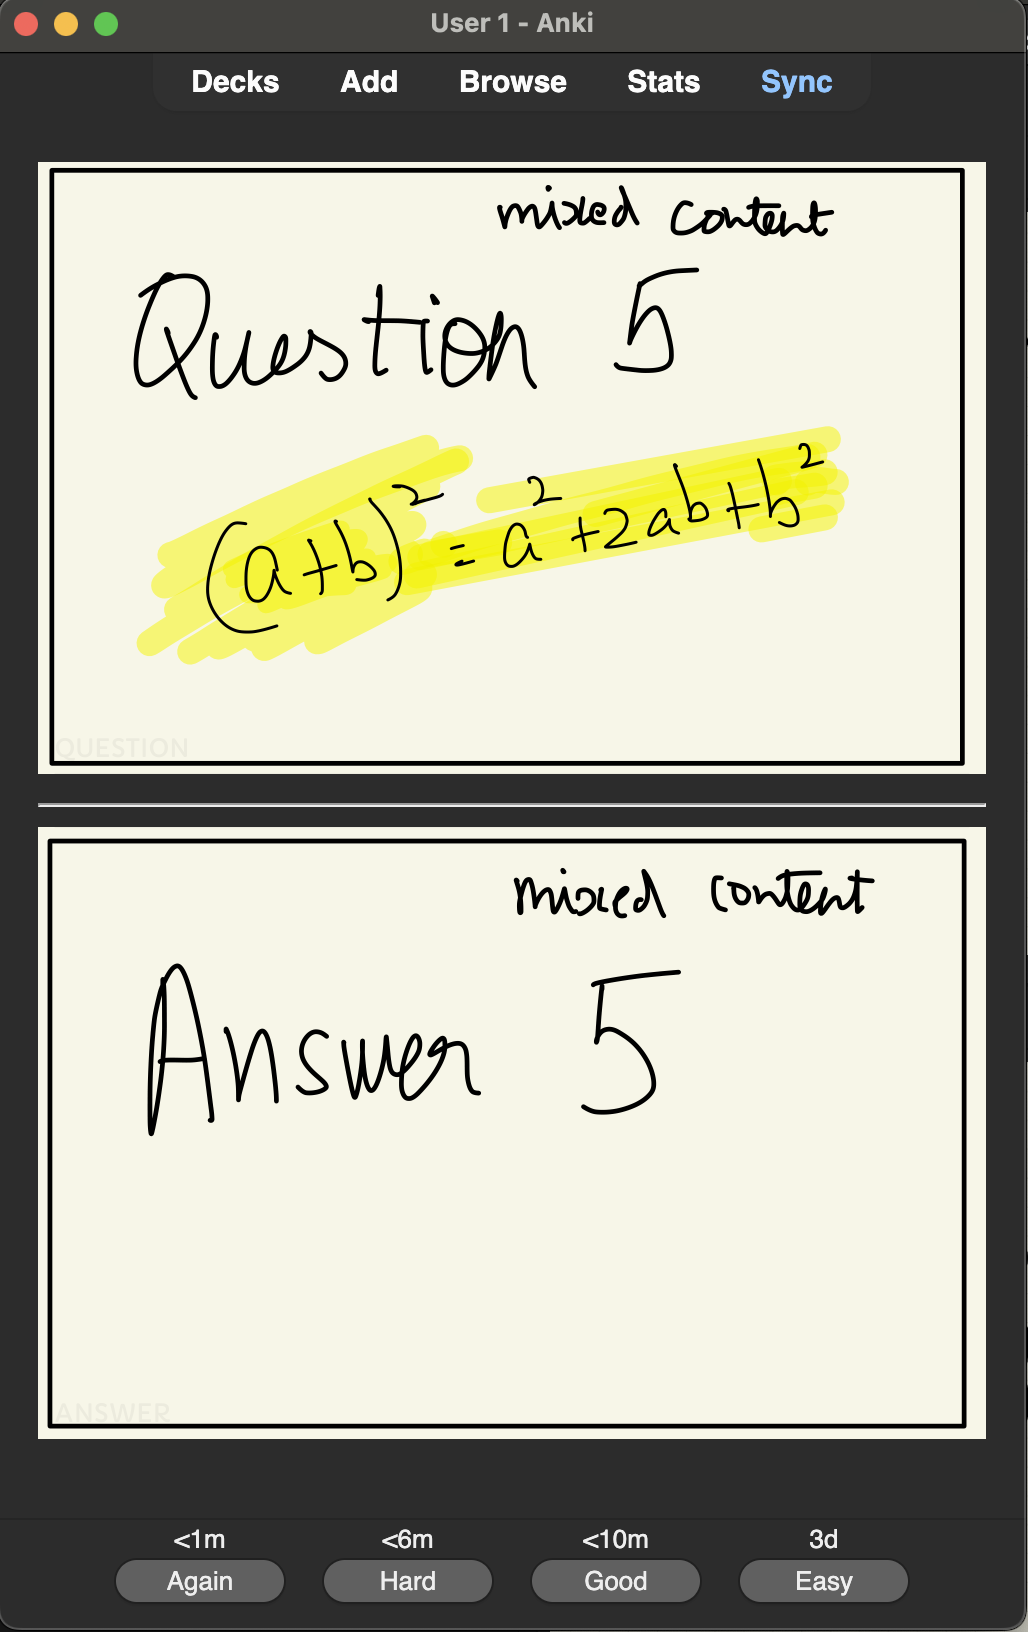 User 1 - Anki
Decks Add Browse Stats Sync
mixed content
Question 5
(a+b)² = a² +2ab+b²
QUESTION
mixed content
Answer 5
ANSWER
<1m <6m <10m 3d
Again Hard Good Easy